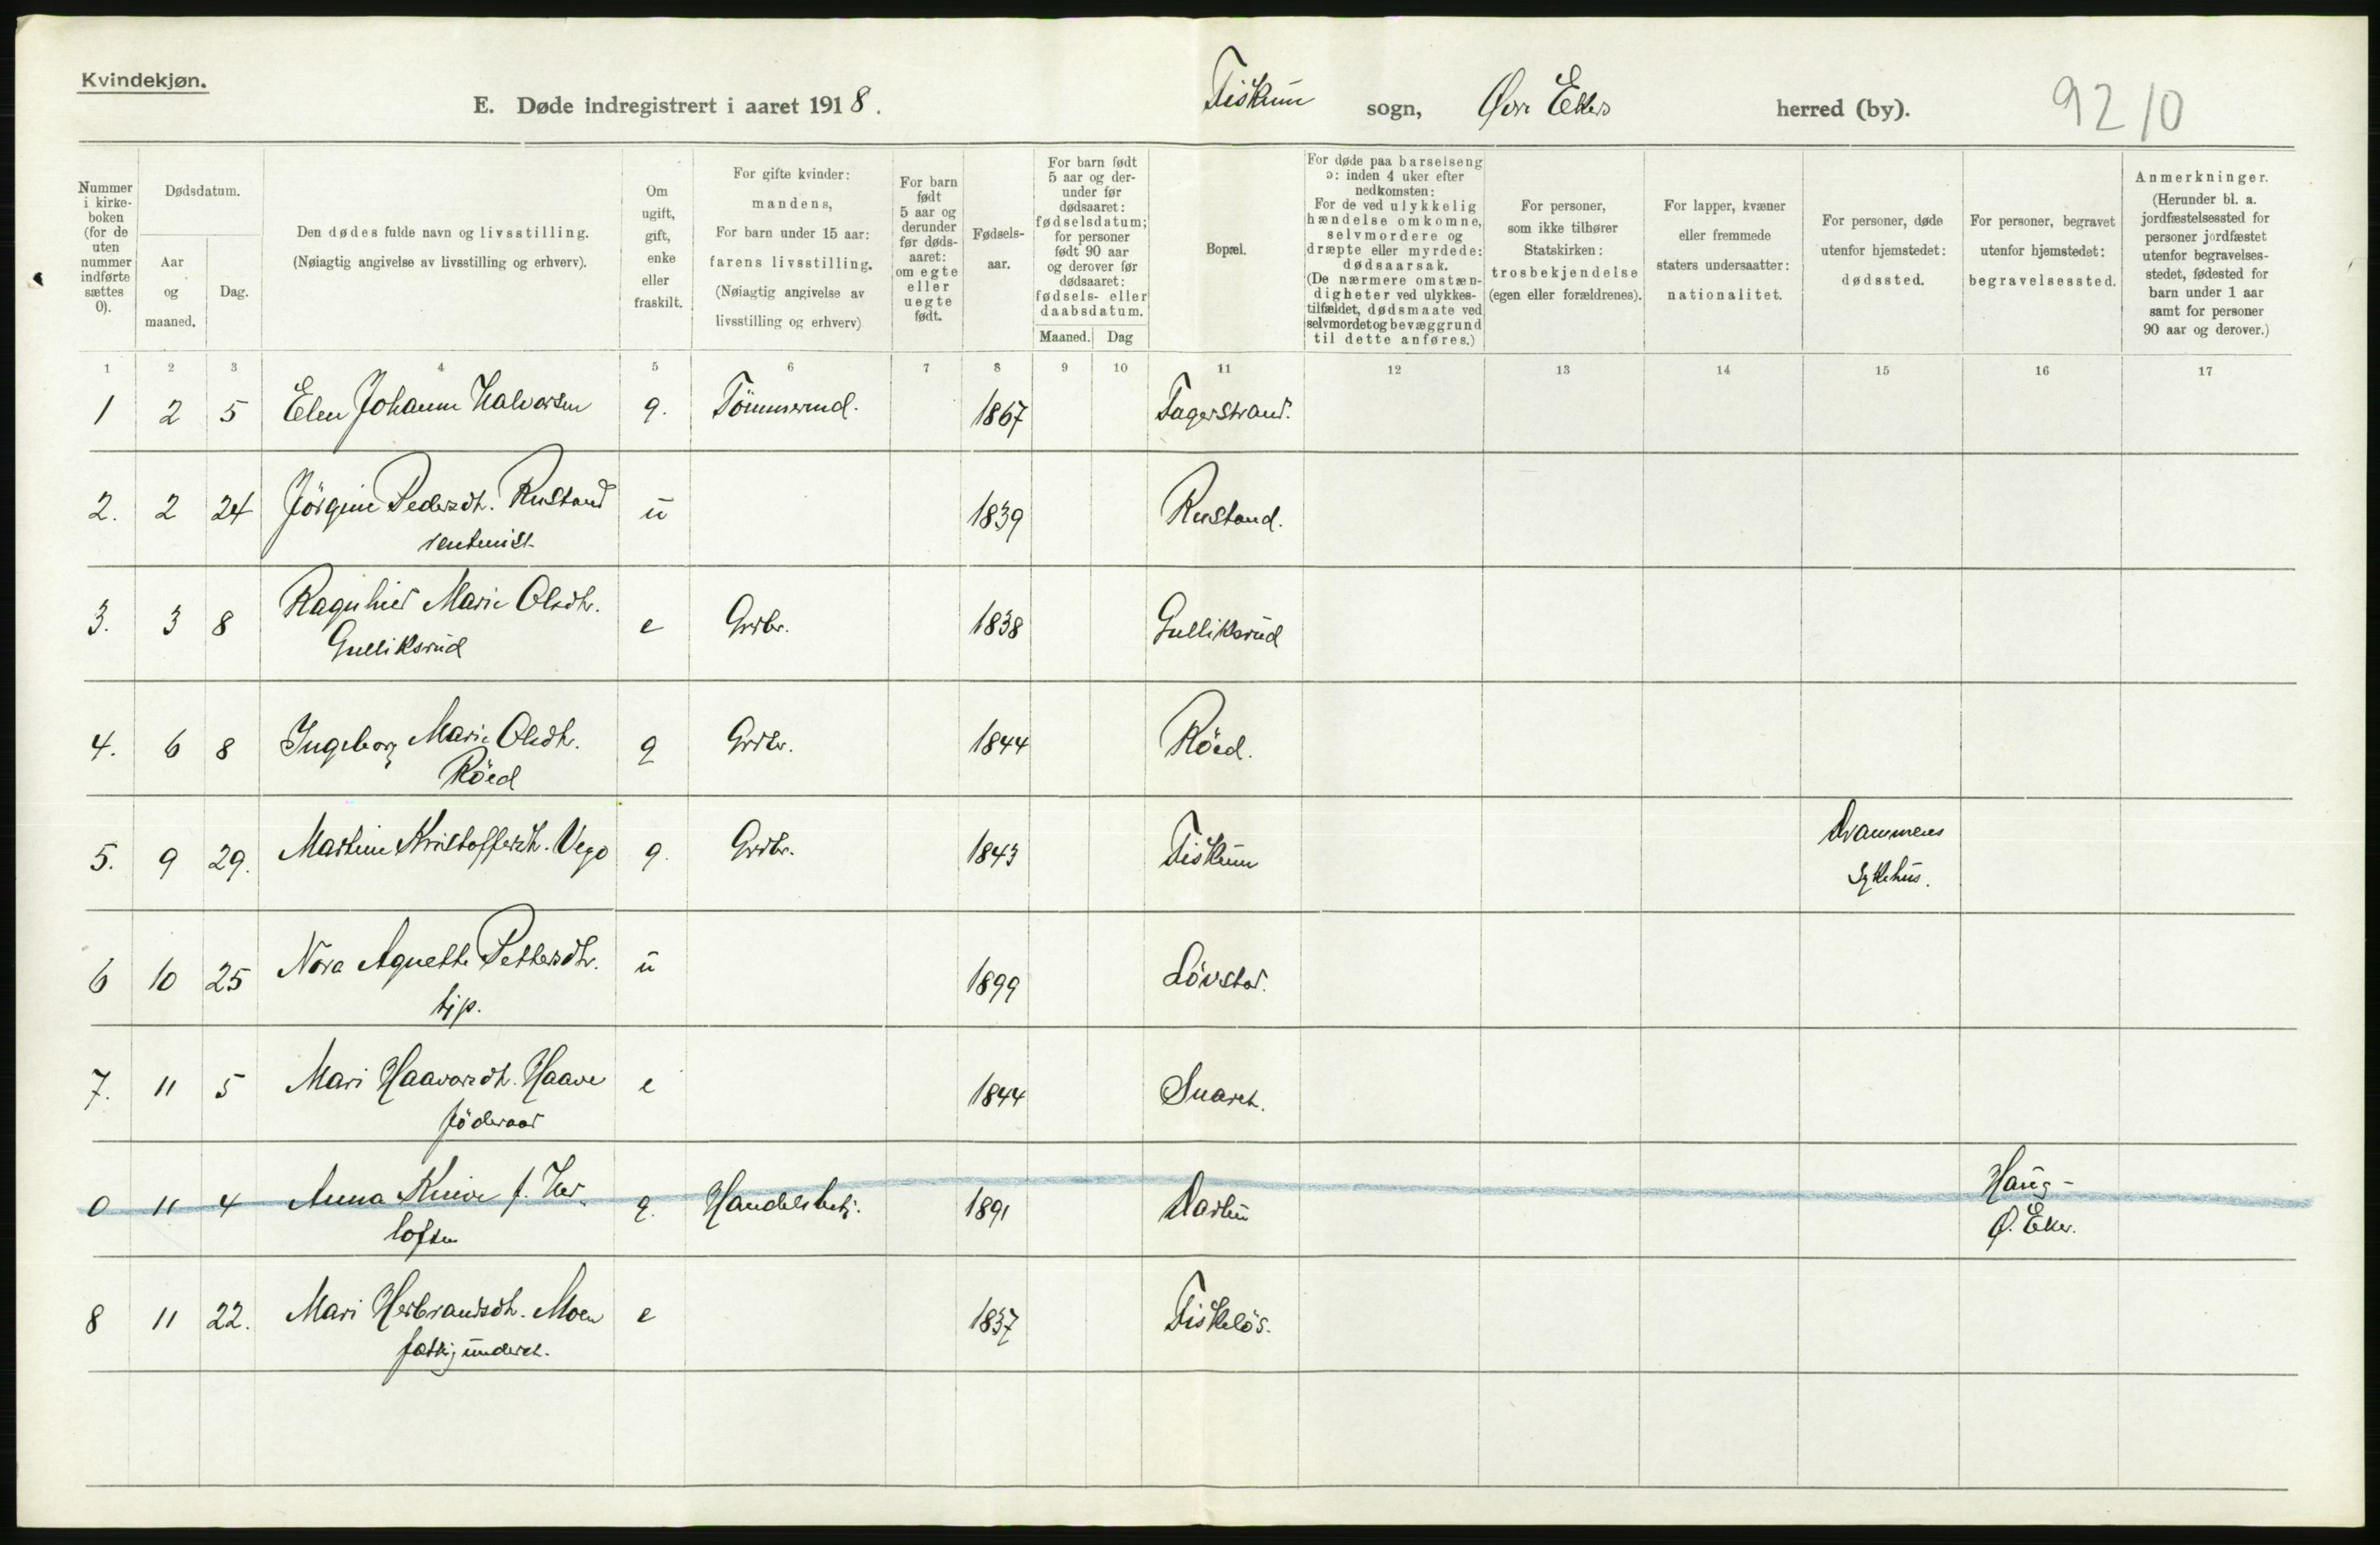 Kvindekjøn.
E. Døde indregistrert i aaret 1918. Fiskum sogn, Øvre Eker herred (by). 9210
Nummer i kirkeboken (for de uten nummer indførte sættes 0).
Dødsdatum.
Aar og maaned.
Dag.
Den dødes fulde navn og livsstilling.
(Nøiagtig angivelse av livsstilling og erhverv).
Om ugift, gift, enke eller fraskilt.
For gifte kvinder: mandens,
For barn under 15 aar: farens livsstilling.
(Nøiagtig angivelse av livsstilling og erhverv)
For barn født 5 aar og derunder før dødsaaret: om egte eller uegte født.
Fødselsaar.
For barn født 5 aar og derunder før dødsaaret: fødselsdatum; for personer født 90 aar og derover før dødsaaret: fødsels- eller daabsdatum.
Maaned. Dag
Bopæl.
For døde paa barselseng ɔ: inden 4 uker efter nedkomsten:
For de ved ulykkelig hændelse omkomne, selvmordere og dræpte eller myrdede: dødsaarsak.
(De nærmere omstændigheter ved ulykkestilfældet, dødsmaate ved selvmordet og bevæggrund til dette anføres.)
For personer, som ikke tilhører Statskirken: trosbekjendelse (egen eller forældrenes).
For lapper, kvæner eller fremmede staters undersaatter: nationalitet.
For personer, døde utenfor hjemstedet: dødssted.
For personer, begravet utenfor hjemstedet: begravelsessted.
Anmerkninger.
(Herunder bl. a. jordfæstelsessted for personer jordfæstet utenfor begravelsesstedet, fødested for barn under 1 aar samt for personer 90 aar og derover.)
1 2 3 4 5 6 7 8 9 10 11 12 13 14 15 16 17
1 2 5 Elen Johanne Halvorsen g. Tömmermd. 1867 Fagerstrand.
2. 2 24 Jörgine Pedersdt. Rustand u 1839 Rustand.
rentenist
3. 3 8 Ragnhild Marie Olsdtr. e Grdbr. 1838 Gulliksrud
Gulliksrud
4. 6 8 Ingeborg Marie Olsdtr. g Grdbr. 1844 Röed.
Röed
5. 9 29. Martine Kristoffersdt. Vego g. Grdbr. 1843 Fiskum Drammens
Sykehus.
6 10 25 Nora Agnethe Pettersdtr. u 1899 Lövstad.
tjp.
7. 11 5 Mari Haavorsdt. Haave e 1844
föderaad
0 11 4 Anna f. Her- g. Handelsbetj. 1891 Haug-
lofsen Ø. Eker.
8 11 22. Mari Herbrandsdt. Moen e 1837 Fiskelös.
fattigunderst.